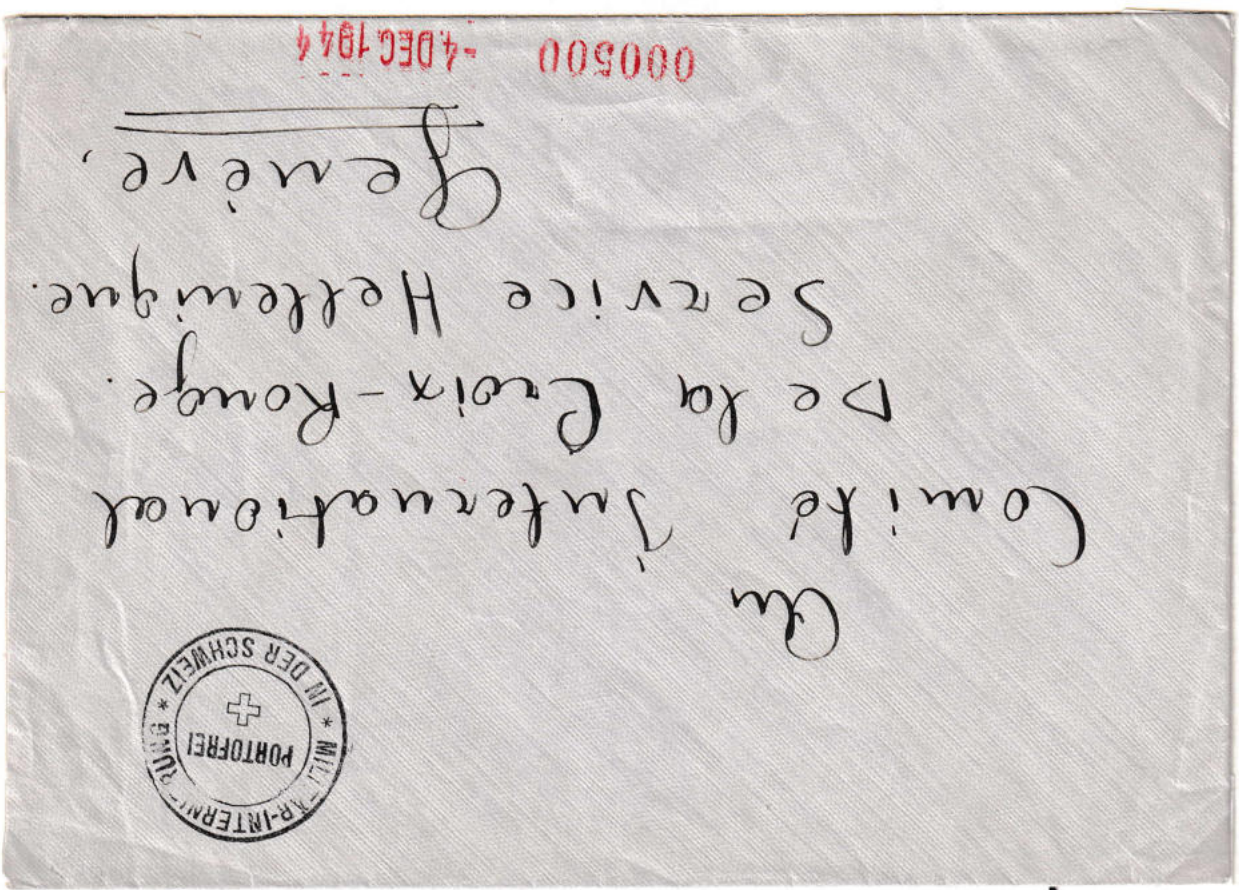 MILITÄR-INTERNIERUNG * IN DER SCHWEIZ *
PORTOFREI
Au
Comité International
De la Croix-Rouge.
Service Hellenique.
Genève,
000500 -4.DEC.1944